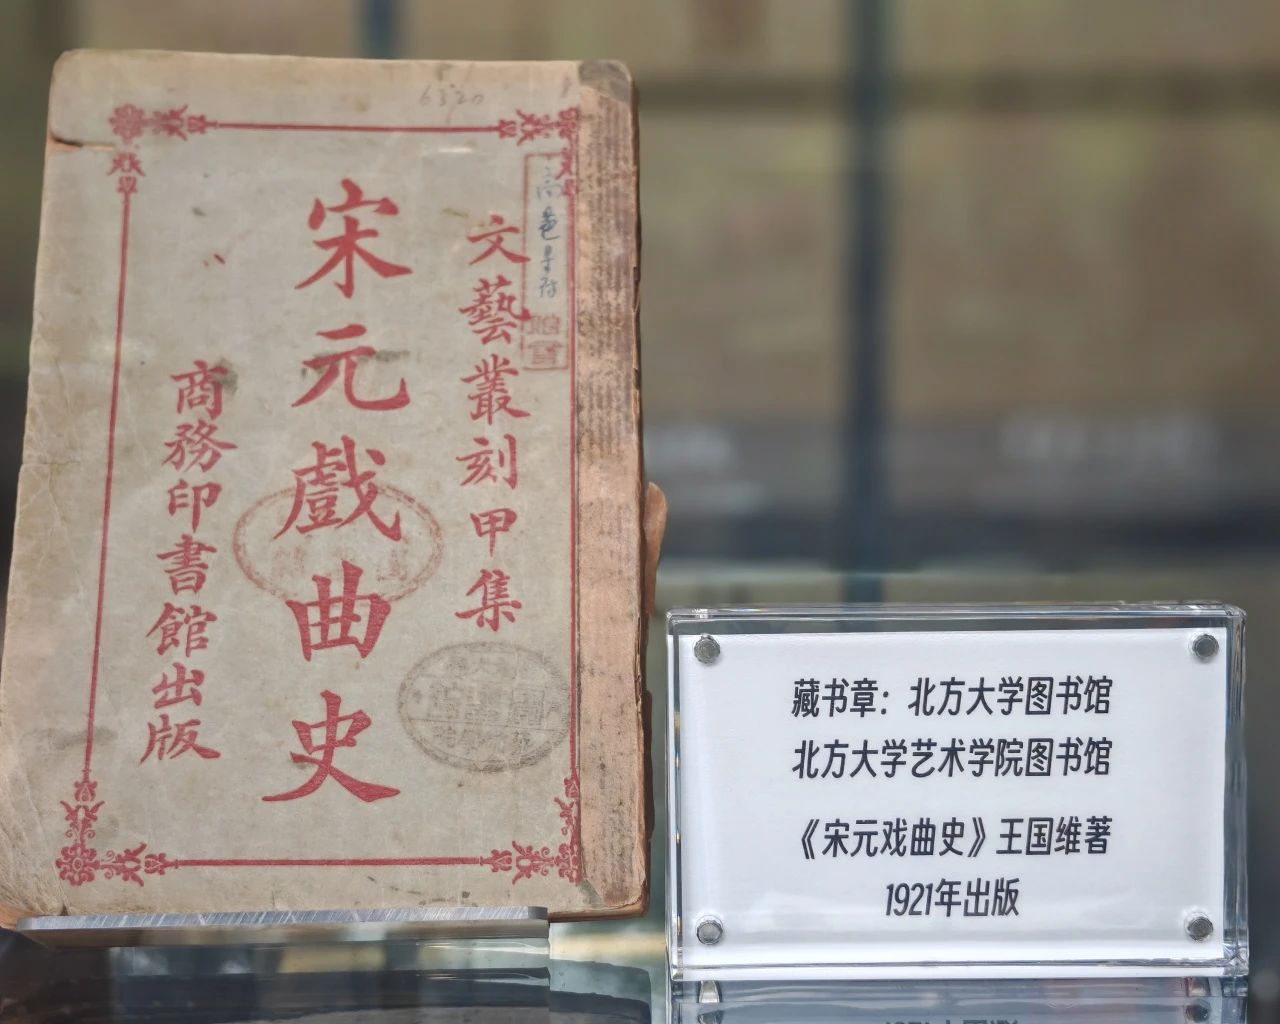 6320
文藝叢刻甲集
宋元戲曲史
商務印書館出版
藏书章：北方大学图书馆
北方大学艺术学院图书馆
《宋元戏曲史》王国维著
1921年出版